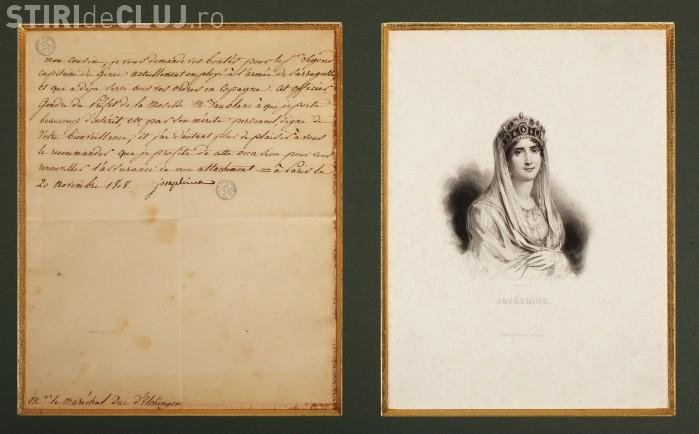 STIRIdeCLUJ.ro
mon cousin, je vous demande vos bontés pour le Sr. Segond
capitaine du Génie actuellement employé à l'armée de Sarragosse
et qui a déja servi sous vos ordres en Espagne. cet officier
Gendre du Préfet de la Moselle Mr. Vaublanc à qui je porte
beaucoup d'intérêt, est par son mérite personnel digne de
votre bienveillance, et j'ai d'autant plus de plaisir à vous
le recommander que je profite de cette occasion pour vous
renouveller l'assurance de mon attachement = à Paris le
20 novembre 1808. Josephine
Mr. le Maréchal Duc d'Elchingen
JOSÉPHINE.